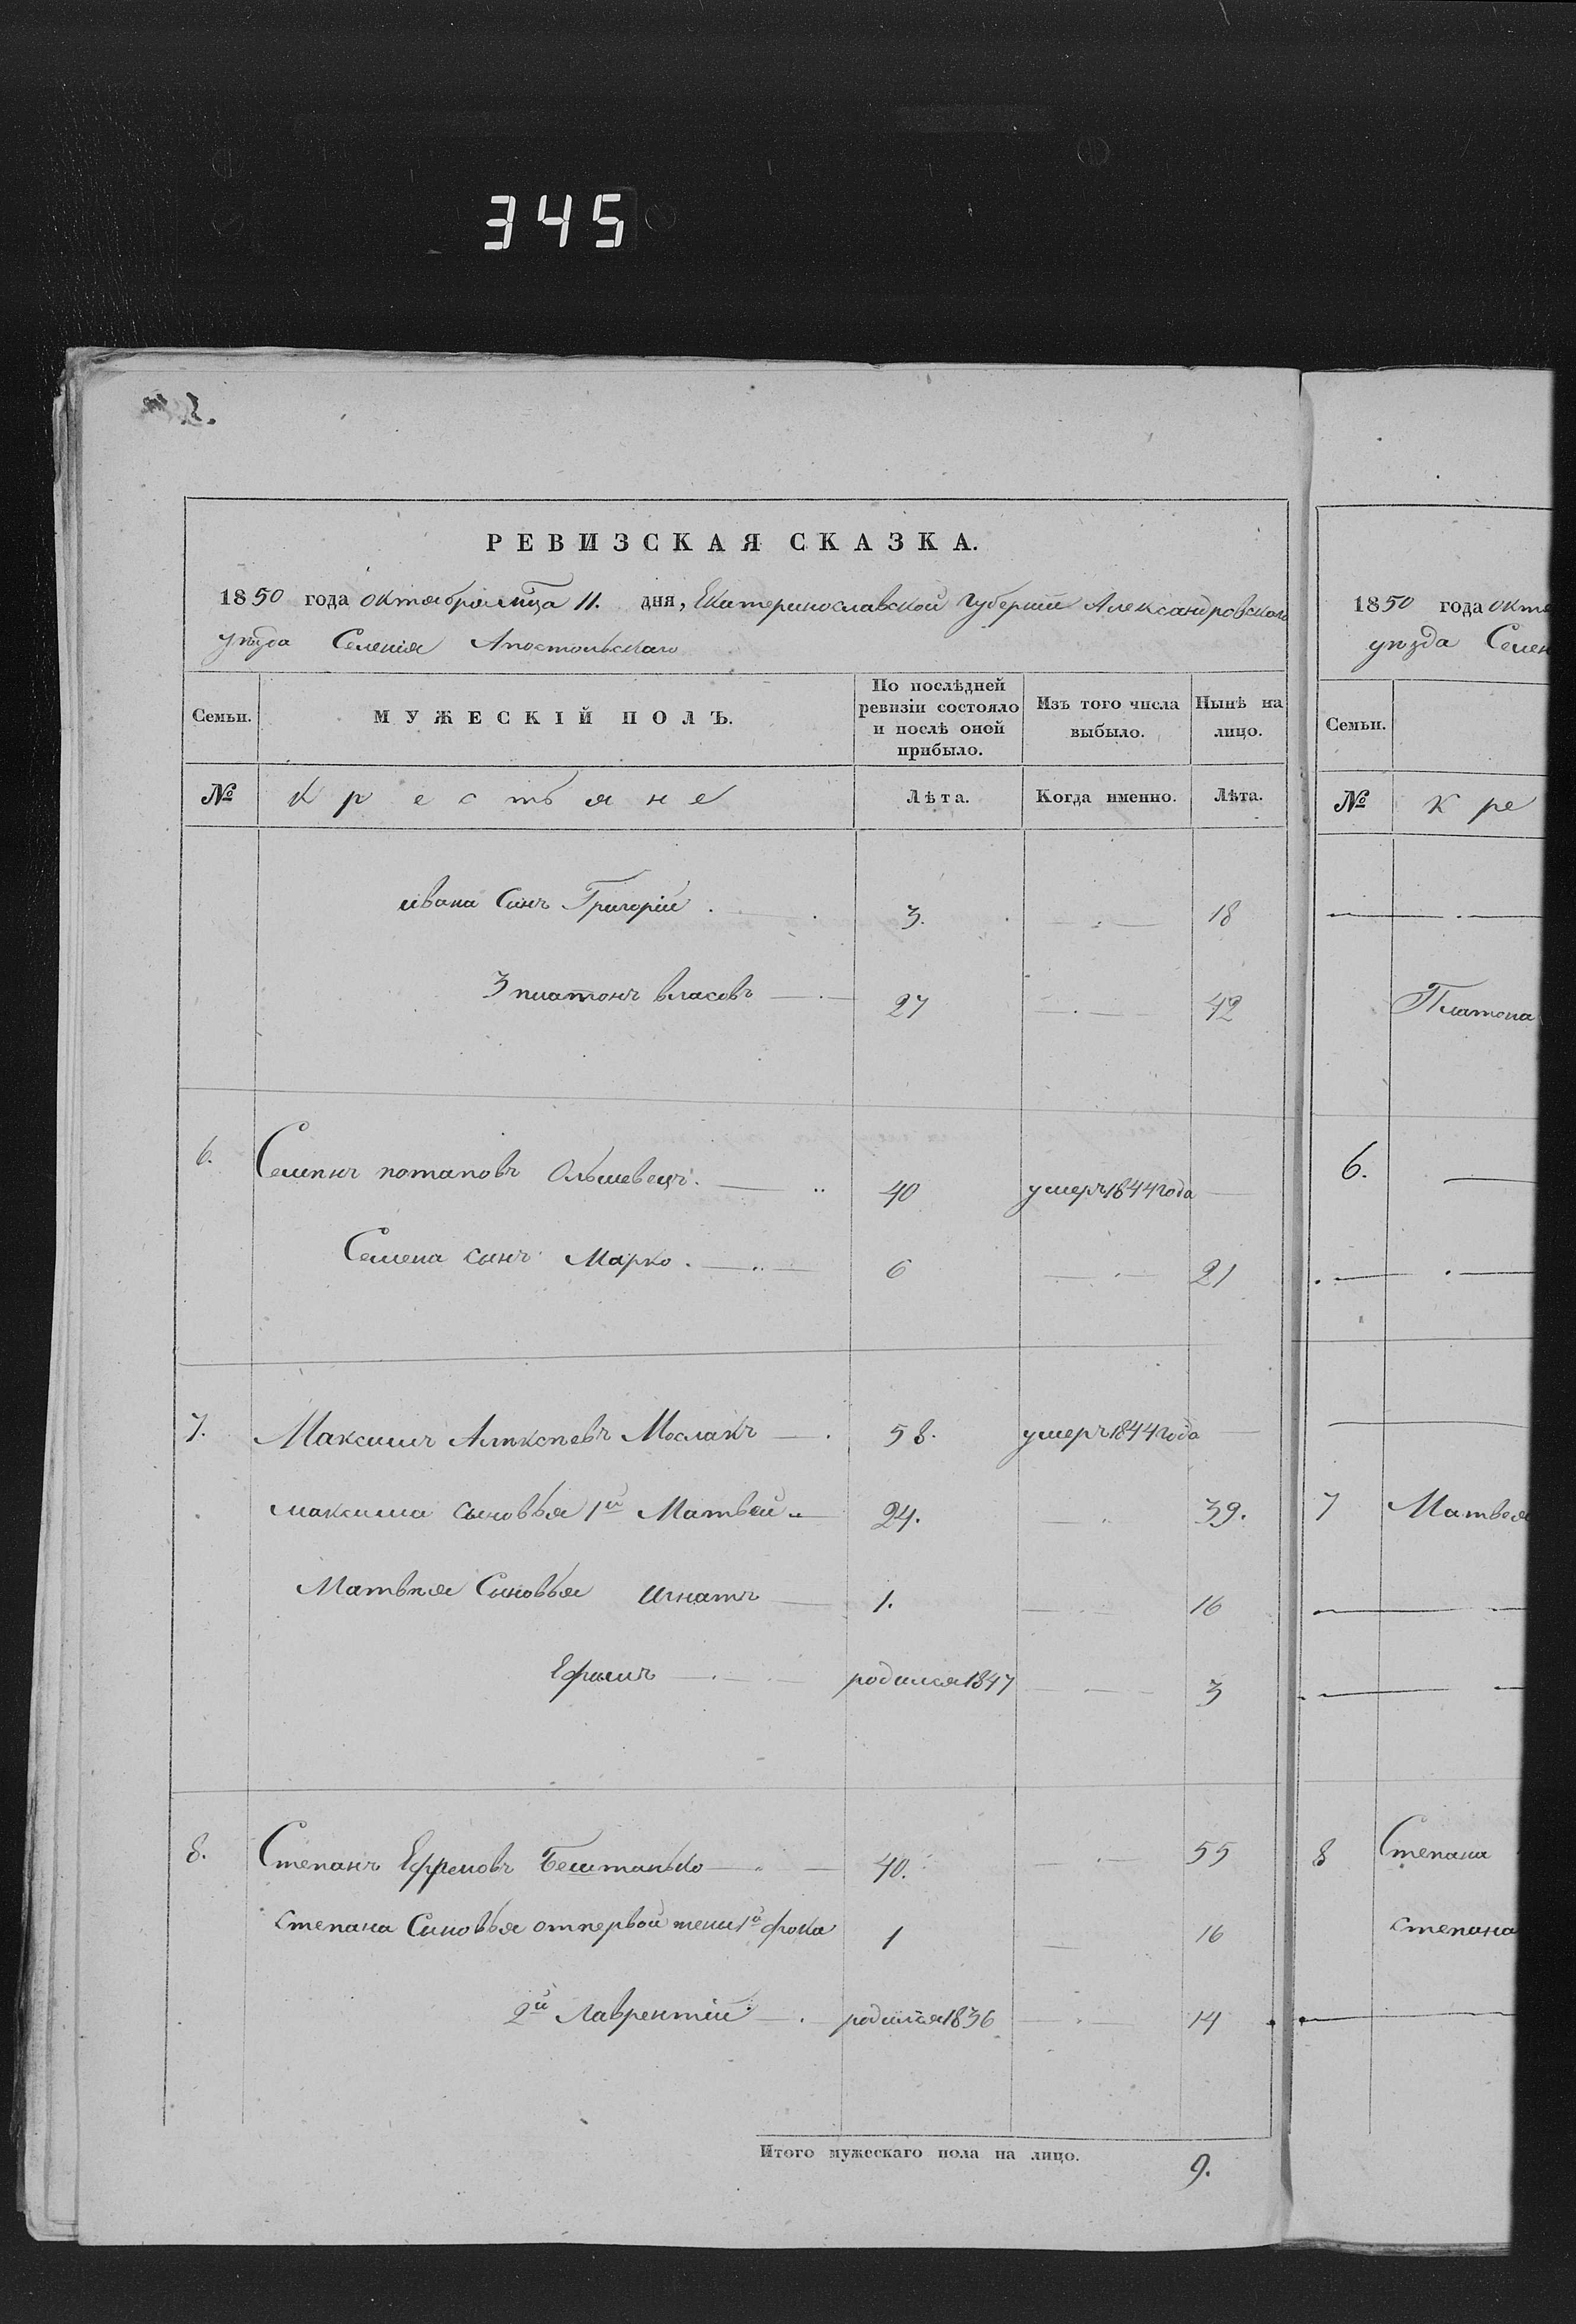 345
2.
РЕВИЗСКАЯ СКАЗКА.
1850 года октября мца 11. дня, Екатеринославской Губернии Александровскаго
уѣзда Селенія Апостольскаго
Семьи.
МУЖЕСКІЙ ПОЛЪ.
По послѣдней ревизіи состояло и послѣ оной прибыло.
Изъ того числа выбыло.
Нынѣ на лицо.
№ Крестьяне Лѣта. Когда именно. Лѣта.
ивана Синъ Григорій 3. 18
3 платонъ власовъ 27 42
6. Семенъ потаповъ Ольшевецъ. 40 умеръ 1844 года
Семена сынъ Марко. 6 21
7. Максимъ Алѣксѣевъ Мослакъ 58. умеръ 1844 года
максима сыновья 1й Матвей 24. 39.
Матвѣя Синовья Игнатъ 1. 16
Ефимъ родился 1847 3
8. Степанъ Ефремовъ Бештанько 40. 55
Степана Синовья отпервой жени 1й фока 1 16
2й Лаврентій родился 1836 14
Итого мужескаго пола на лицо. 9.
1850 года окт
уѣзда Селен
Семьи.
№ К ре
Платона
6.
7 Матвея
8 Степана
Степана